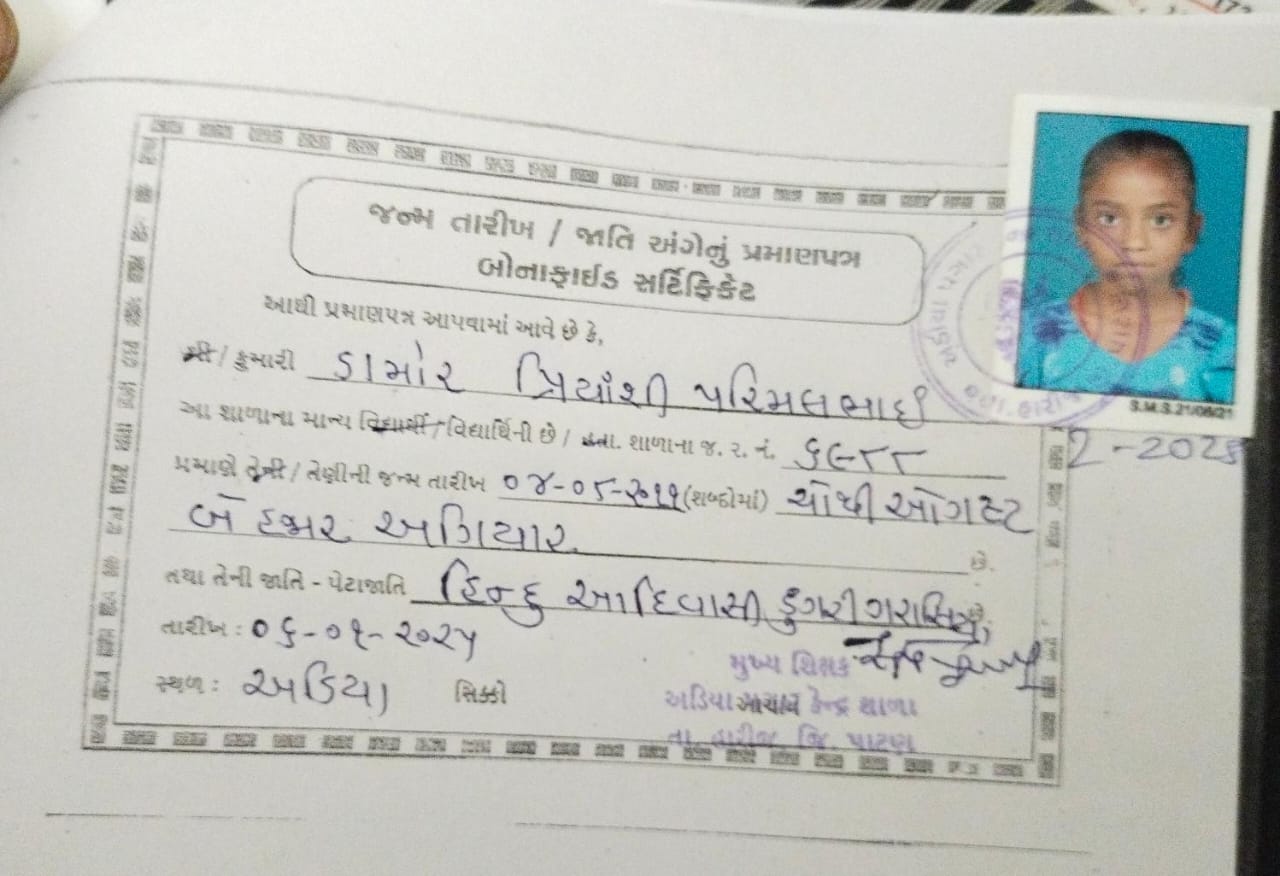 જન્મ તારીખ / જાતિ અંગેનું પ્રમાણપત્ર
બોનાફાઈડ સર્ટિફિકેટ
આથી પ્રમાણપત્ર આપવામાં આવે છે કે,
શ્રી / કુમારી ડામોર પ્રિયાંશી પરિમલભાઈ
આ શાળાના માન્ય વિદ્યાર્થી / વિદ્યાર્થિની છે / હતા. શાળાના જ. ર. નં. ૬૯૮૮
પ્રમાણે તેની / તેણીની જન્મ તારીખ ૦૪-૦૮-૨૦૧૧ (શબ્દોમાં) ચોથી ઓગસ્ટ
બે હજાર અગિયાર છે.
તથા તેની જાતિ - પેટાજાતિ હિન્દુ આદિવાસી ડુંગરી ગરાસિયા છે,
તારીખ : ૦૬-૦૧-૨૦૨૫
સ્થળ : અડિયા સિક્કો
મુખ્ય શિક્ષક
અડિયા પગાર કેન્દ્ર શાળા
તા. હારીજ જિ. પાટણ
S.M.S.21/06/21